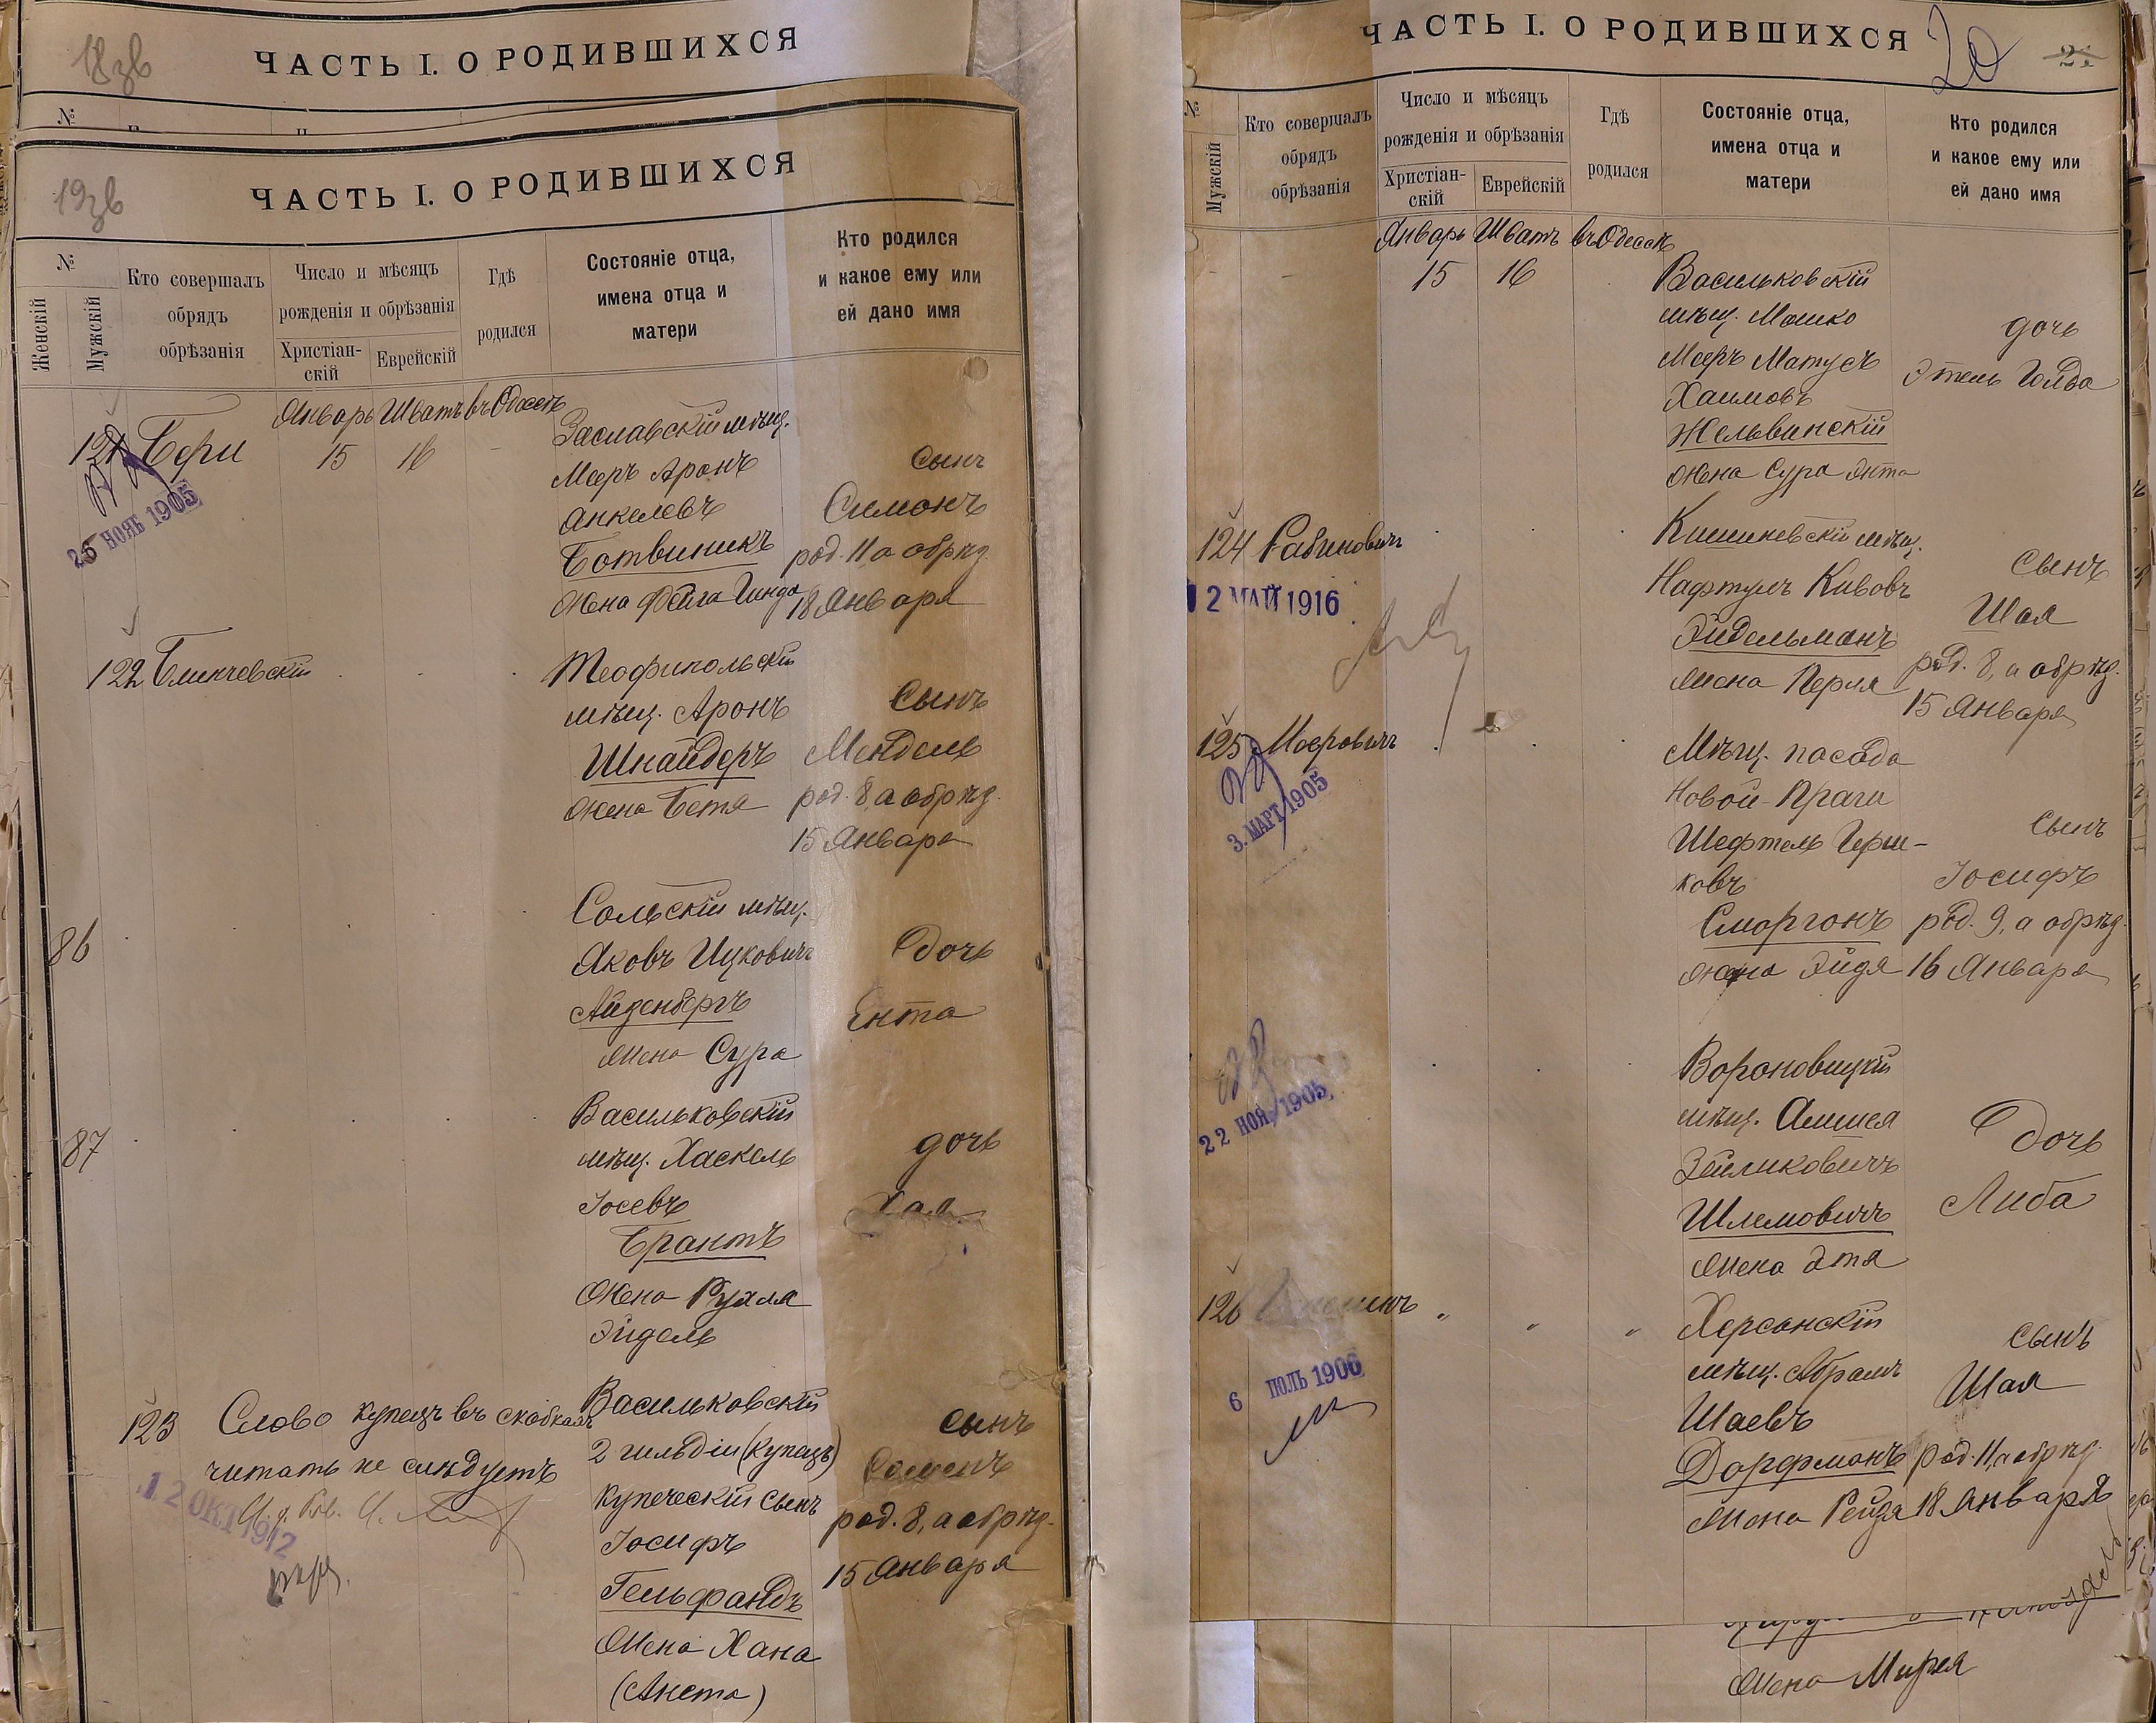 18зв
ЧАСТЬ I. О РОДИВШИХСЯ
№
19зв
ЧАСТЬ I. О РОДИВШИХСЯ
№
Женскій
Мужскій
Кто совершалъ
обрядъ
обрѣзанія
Число и мѣсяцъ
рожденія и обрѣзанія
Христіан-
скій
Еврейскій
Гдѣ
родился
Состояніе отца,
имена отца и
матери
Кто родился
и какое ему или
ей дано имя
Январь Шватъ въ Одессѣ
121 Бери 15 16
26 НОЯБ 1905
Заславскій мѣщ.
Меръ Аронъ
Анкелевъ
Ботвиникъ
жена Фейга Гинда
сынъ
Симонъ
род. 11 а обрѣз.
18 Января
122 Блинчевскій
Теофипольскій
мѣщ. Аронъ
Шнайдеръ
жена Бетя
Сынъ
Мендель
род. 8, а обрѣз.
15 Января
86
Сольскій мѣщ.
Яковъ Ицковичъ
Айзенбергъ
жена Сура
дочь
Ента
87
Васильковскій
мѣщ. Хаскель
Іосевъ
Брантъ
жена Рухля
Эйдель
дочь
Хая
123 Слово купецъ въ скобкахъ
читать не слѣдуетъ
12 ОКТ 1912
Васильковскій
2 гильдіи (купецъ)
купеческій сынъ
Іосифъ
Гельфандъ
Жена Хана
(Анета)
сынъ
Семенъ
род. 8, а обрѣз.
15 Января
ЧАСТЬ I. О РОДИВШИХСЯ
20
21
№
Мужскій
Кто совершалъ
обрядъ
обрѣзанія
Число и мѣсяцъ
рожденія и обрѣзанія
Христіан-
скій
Еврейскій
Гдѣ
родился
Состояніе отца,
имена отца и
матери
Кто родился
и какое ему или
ей дано имя
Январь Шватъ въ Одессѣ
15 16
Васильковскій
мѣщ. Мошко
Меръ Матусъ
Хаимовъ
Жельвинскій
жена Сура Энта
дочь
Этель Голда
124 Рабиновичъ
2 МАЙ 1916
Кишиневскій мѣщ.
Нафтулъ Кивовъ
Эйдельманъ
жена Перля
Сынъ
Шая
род. 8, а обрѣз.
15 Января
125 Моеровичъ
3. МАРТ 1905
Мѣщ. посада
Новой-Праги
Шефтель Герш-
ковъ
Сморгонъ
жена Эйдя
сынъ
Іосифъ
род. 9, а обрѣз.
16 Января
22 НОЯ 1905
Вороновицкій
мѣщ. Алишея
Зейликовичъ
Шлемовичъ
жена Этя
дочь
Либа
126
6 ІЮЛЬ 1906
Херсонскій
мѣщ. Абрамъ
Шаевъ
Дорфманъ
жена Рейзя
сынъ
Шая
род. 11, а обрѣз.
18 Января
Жена Мирея